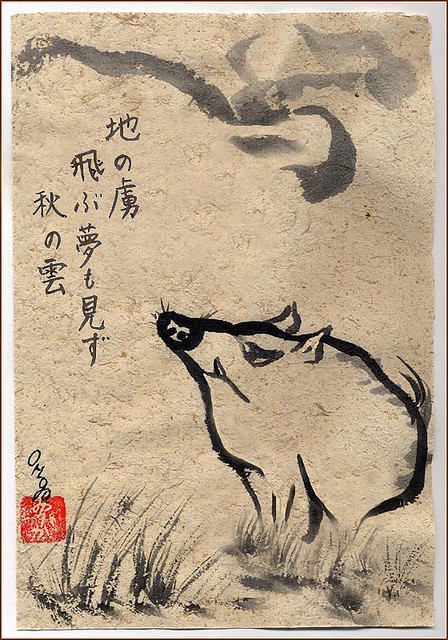 地の虜
飛ぶ夢も見ず
秋の雲